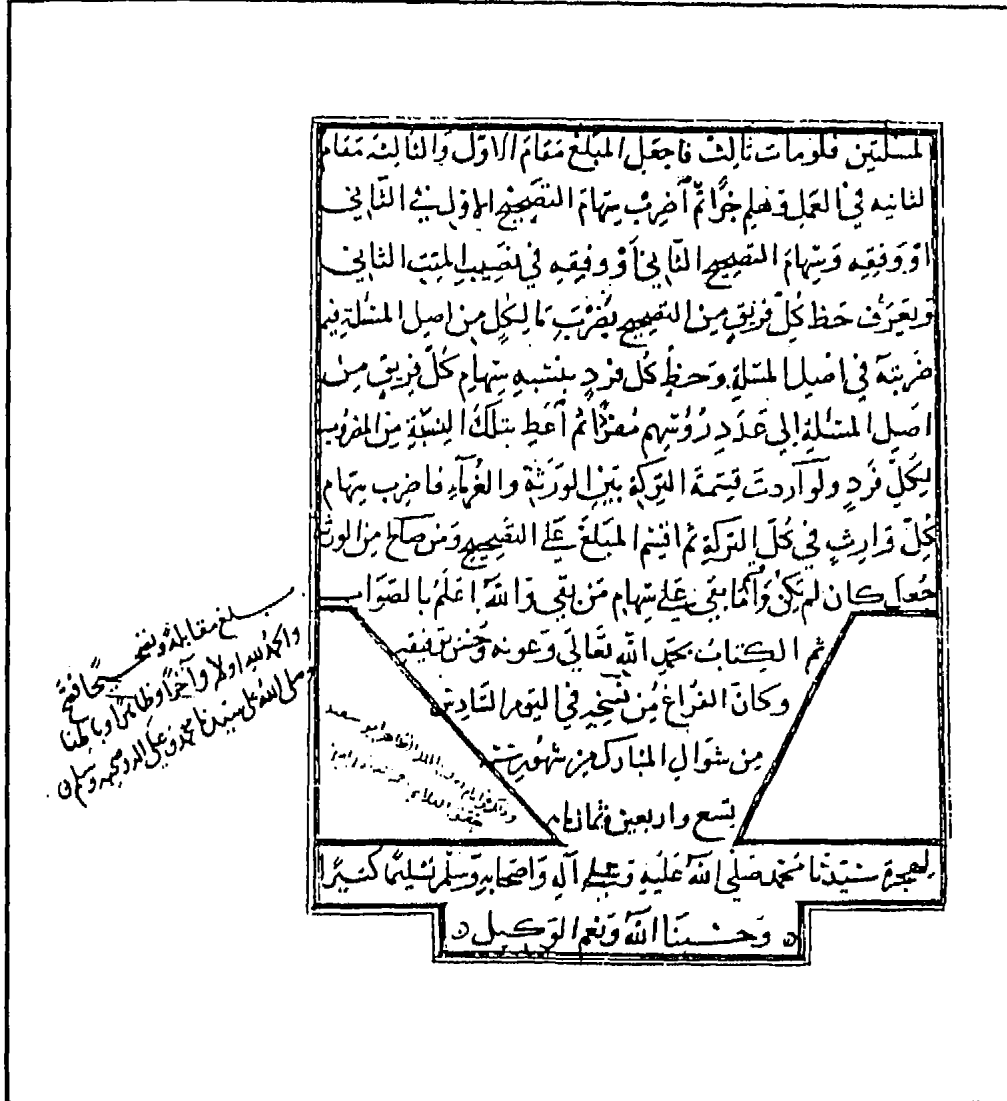 المسئلتين فلومات ثالث فاجعل المبلغ مقام الاول والثالثة مقام
الثانيه في العمل وهلم جرًّا ثم أضرب سهام التصحيح الاول في الثاني
او وفقه وسهام التصحيح الثاني أو وفقه في نصيب الميت الثاني
ويعرف حظ كل فريق من التصحيح بضرب ما لكل من اصل المسئلة فيما
ضربته في اصل المسئلة وحظ كل فرد بنسبه سهام كل فريق من
اصل المسئلة الي عدد رؤسهم مفردًا ثم أعط بتلك النسبة من المضروب
لكل فرد ولو أردت قسمة التركة بين الورثة والغرماء فاضرب سهام
كل وارث في كل التركة ثم اقسم المبلغ علي التصحيح ومن صالح من الورثة
جعل كان لم يكن واقسم ما بقي علي سهام من بقي والله اعلم بالصواب
تم الكتاب بحمد الله تعالي وعونه وحسن توفيقه
وكان الفراغ من نسخه في اليوم السادس
من شوال المبارك من شهور سنة
تسع واربعين وثمان مائه
لهجرة سيدنا محمد صلي الله عليه وعلي آله واصحابه وسلم تسليما كثيرا
وحسبنا الله ونعم الوكيل
بلغ مقابلة وتصحيحًا فصح
والحمد لله اولا وآخرًا وظاهرًا وباطنا
وصلى الله على سيدنا محمد وعلى اله وصحبه وسلم
وذلك في ايام الملك الظاهر ابو سعيد
جقمق